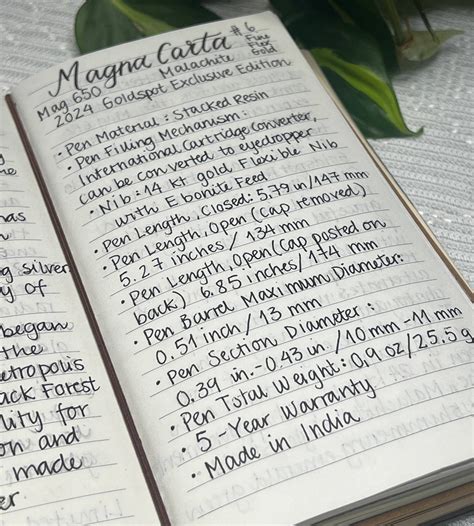 me
nas
n
g silver
y of
began
the
etropolis
ack Forest
lity for
on and
made
er.
Magna Carta #6
Mag 650 Malachite Fine
Flex
2024 Goldspot Exclusive Edition Gold
• Pen Material: Stacked Resin
• Pen Filling Mechanism:
International Cartridge/Converter,
can be converted to eyedropper
• Nib: 14 kt gold Flexible Nib
with Ebonite Feed
• Pen Length, Closed: 5.79 in/147 mm
• Pen Length, Open (cap removed)
5.27 inches / 134 mm
• Pen Length, Open (cap posted on
back) 6.85 inches/174 mm
• Pen Barrel Maximum Diameter:
0.51 inch / 13 mm
• Pen Section Diameter:
0.39 in.-0.43 in / 10 mm -11 mm
• Pen Total Weight: 0.9 oz/25.5 g
• 5-Year Warranty
• Made in India